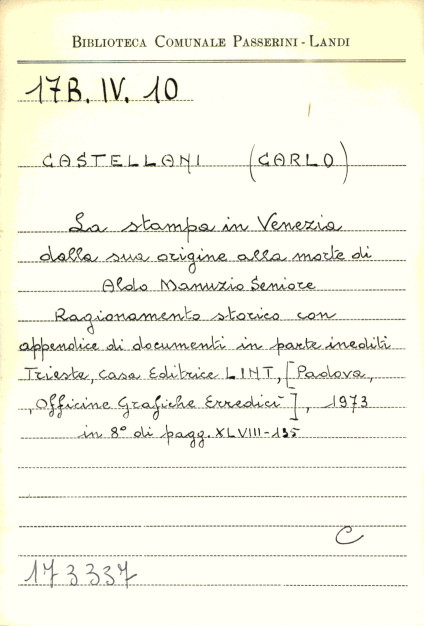 BIBLIOTECA COMUNALE PASSERINI - LANDI
17B. IV. 10
CASTELLANI (CARLO)
La stampa in Venezia
dalla sua origine alla morte di
Aldo Manuzio Seniore
Ragionamento storico con
appendice di documenti in parte inediti
Trieste, Casa Editrice LINT, [Padova,
, Officine Grafiche Erredicì], 1973
in 8° di pagg. XLVIII-135
C
173337